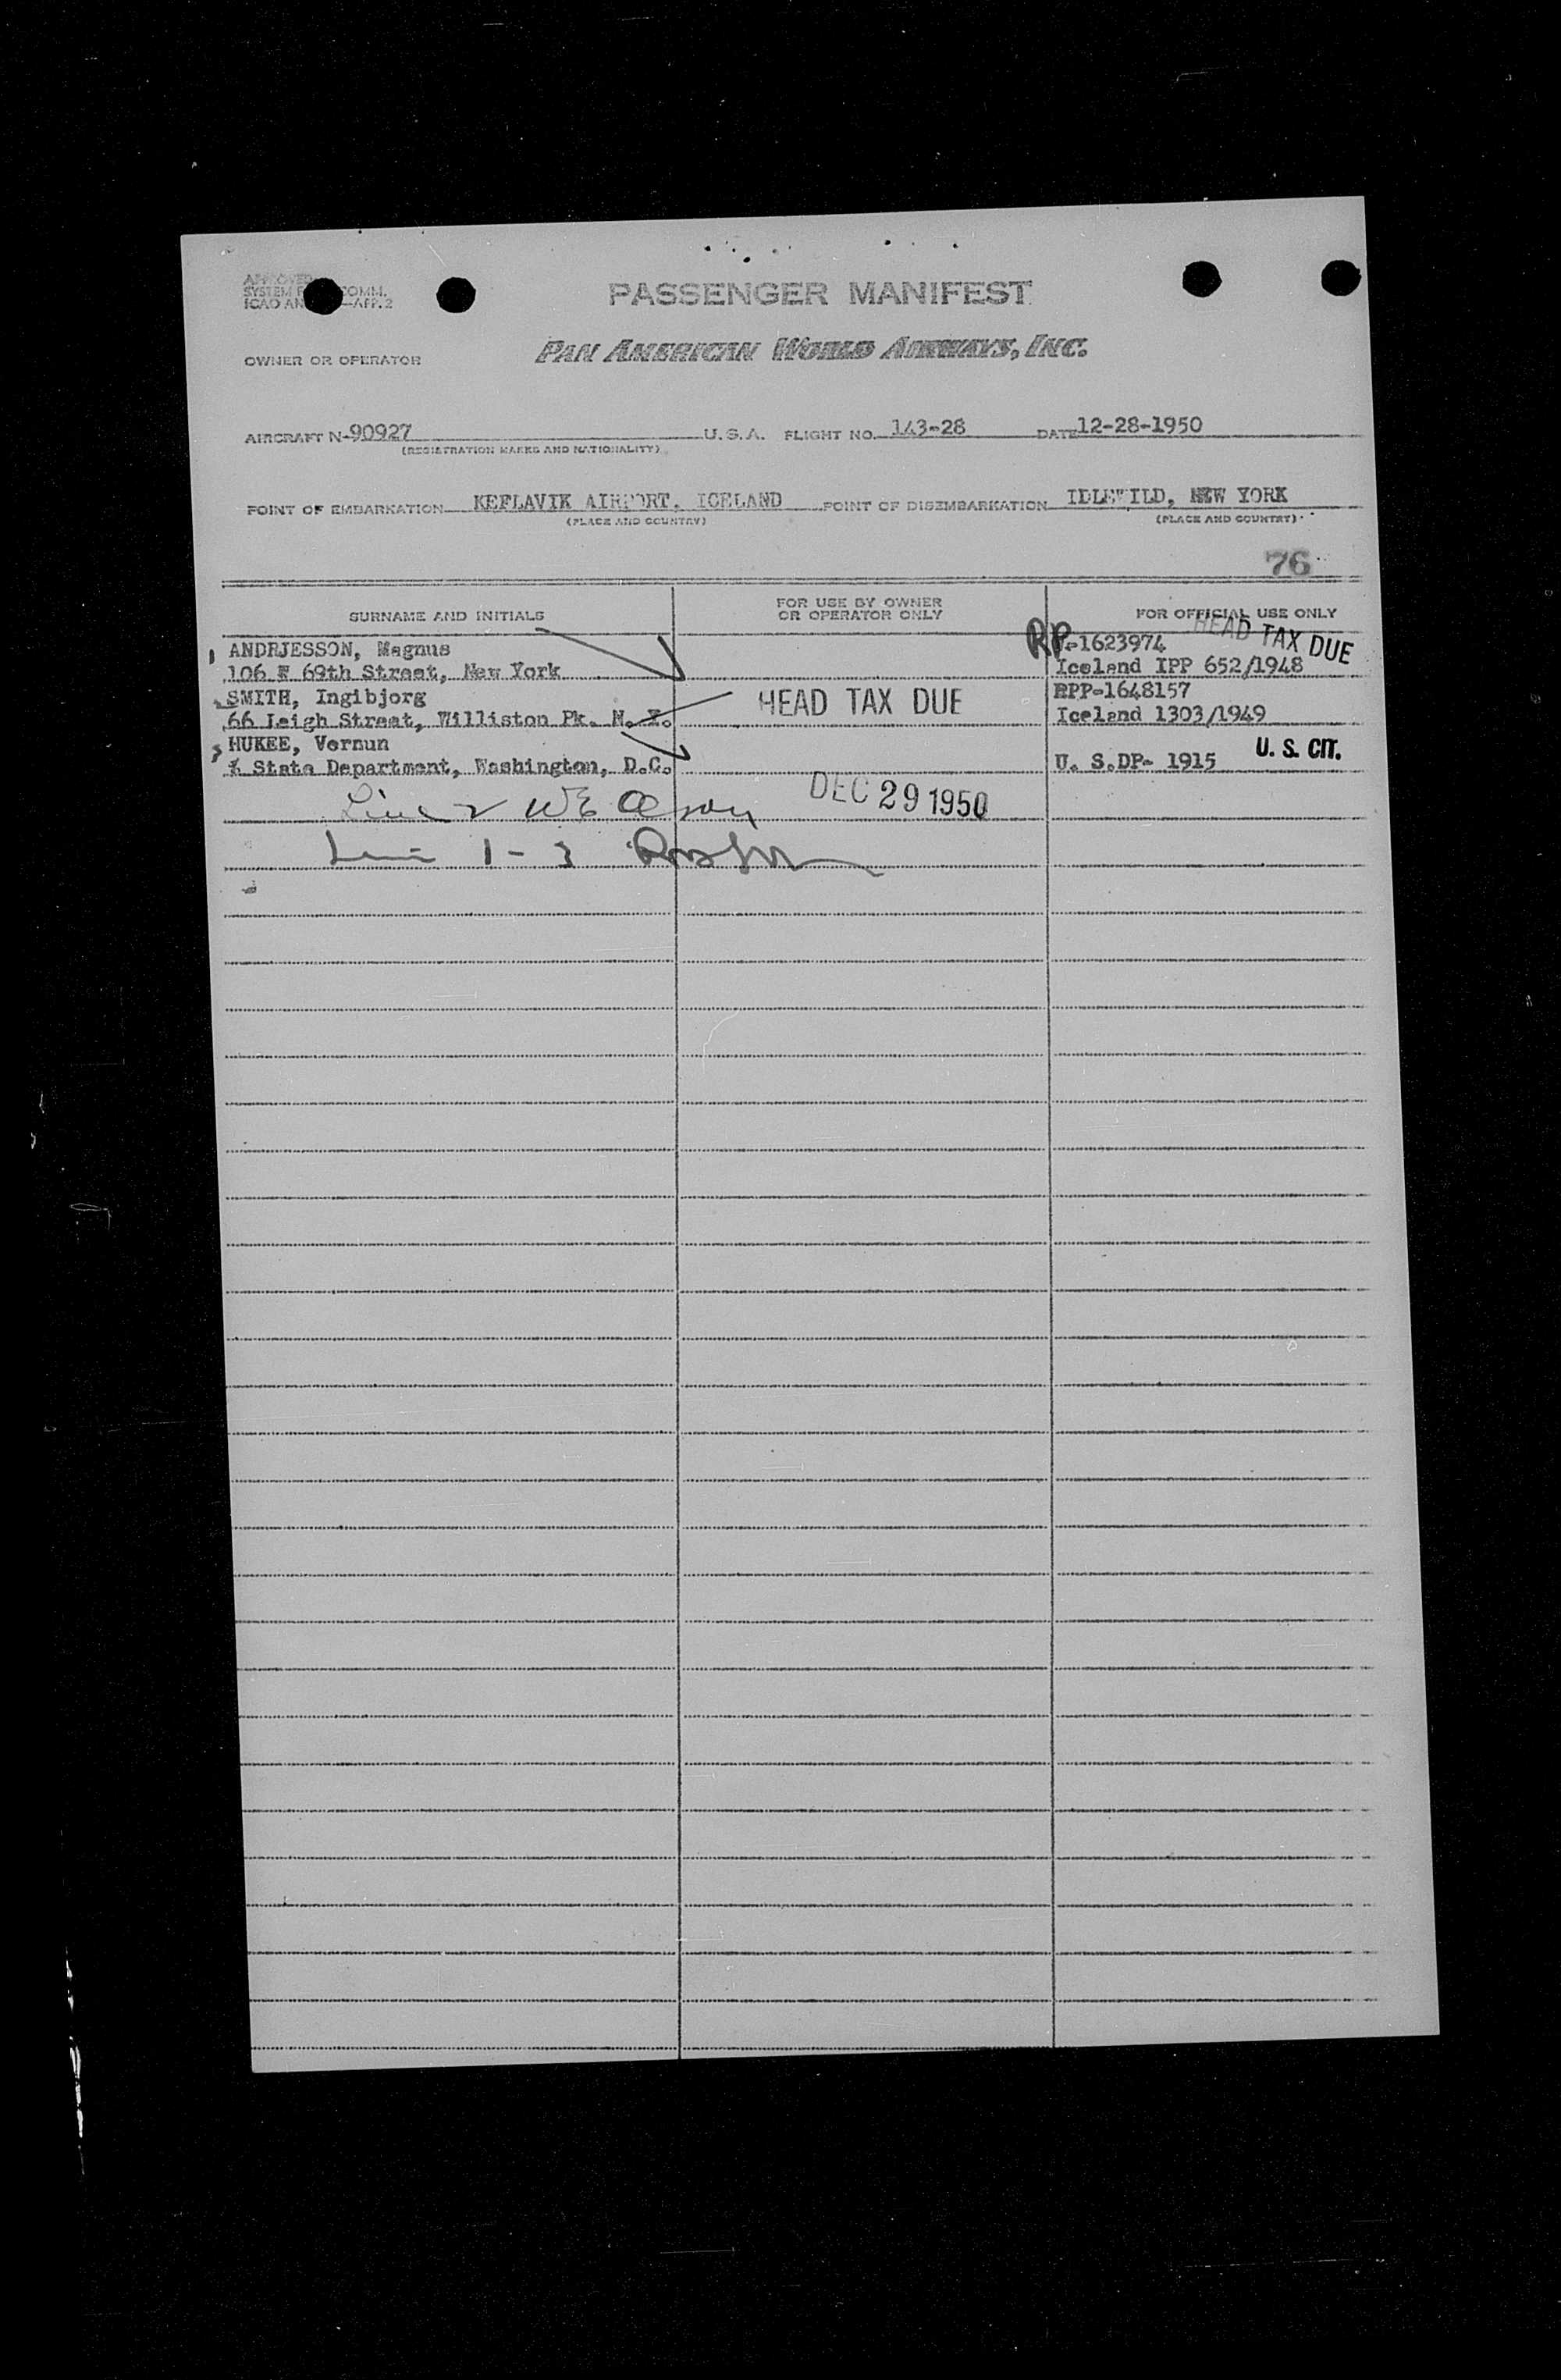 APPROVED
SYSTEM COMM.
ICAO AN —APP. 2
PASSENGER MANIFEST
OWNER OR OPERATOR PAN AMERICAN WORLD AIRWAYS, INC.
AIRCRAFT N-90927 U.S.A. FLIGHT NO. 143-28 DATE 12-28-1950
(REGISTRATION MARKS AND NATIONALITY)
POINT OF EMBARKATION KEFLAVIK AIRPORT, ICELAND POINT OF DISEMBARKATION IDLEWILD, NEW YORK
(PLACE AND COUNTRY) (PLACE AND COUNTRY)
76
SURNAME AND INITIALS FOR USE BY OWNER OR OPERATOR ONLY FOR OFFICIAL USE ONLY
HEAD TAX DUE
1 ANDRJESSON, Magnus RP-1623974
106 E 69th Street, New York Iceland IPP 652/1948
SMITH, Ingibjorg HEAD TAX DUE RPP-1648157
66 Leigh Street, Williston Pk. N. Y. Iceland 1303/1949
3 HUKEE, Vernun U. S. CIT.
% State Department, Washington, D.C. U. S.DP- 1915
Line 2 WE Olson DEC 29 1950
Line 1-3